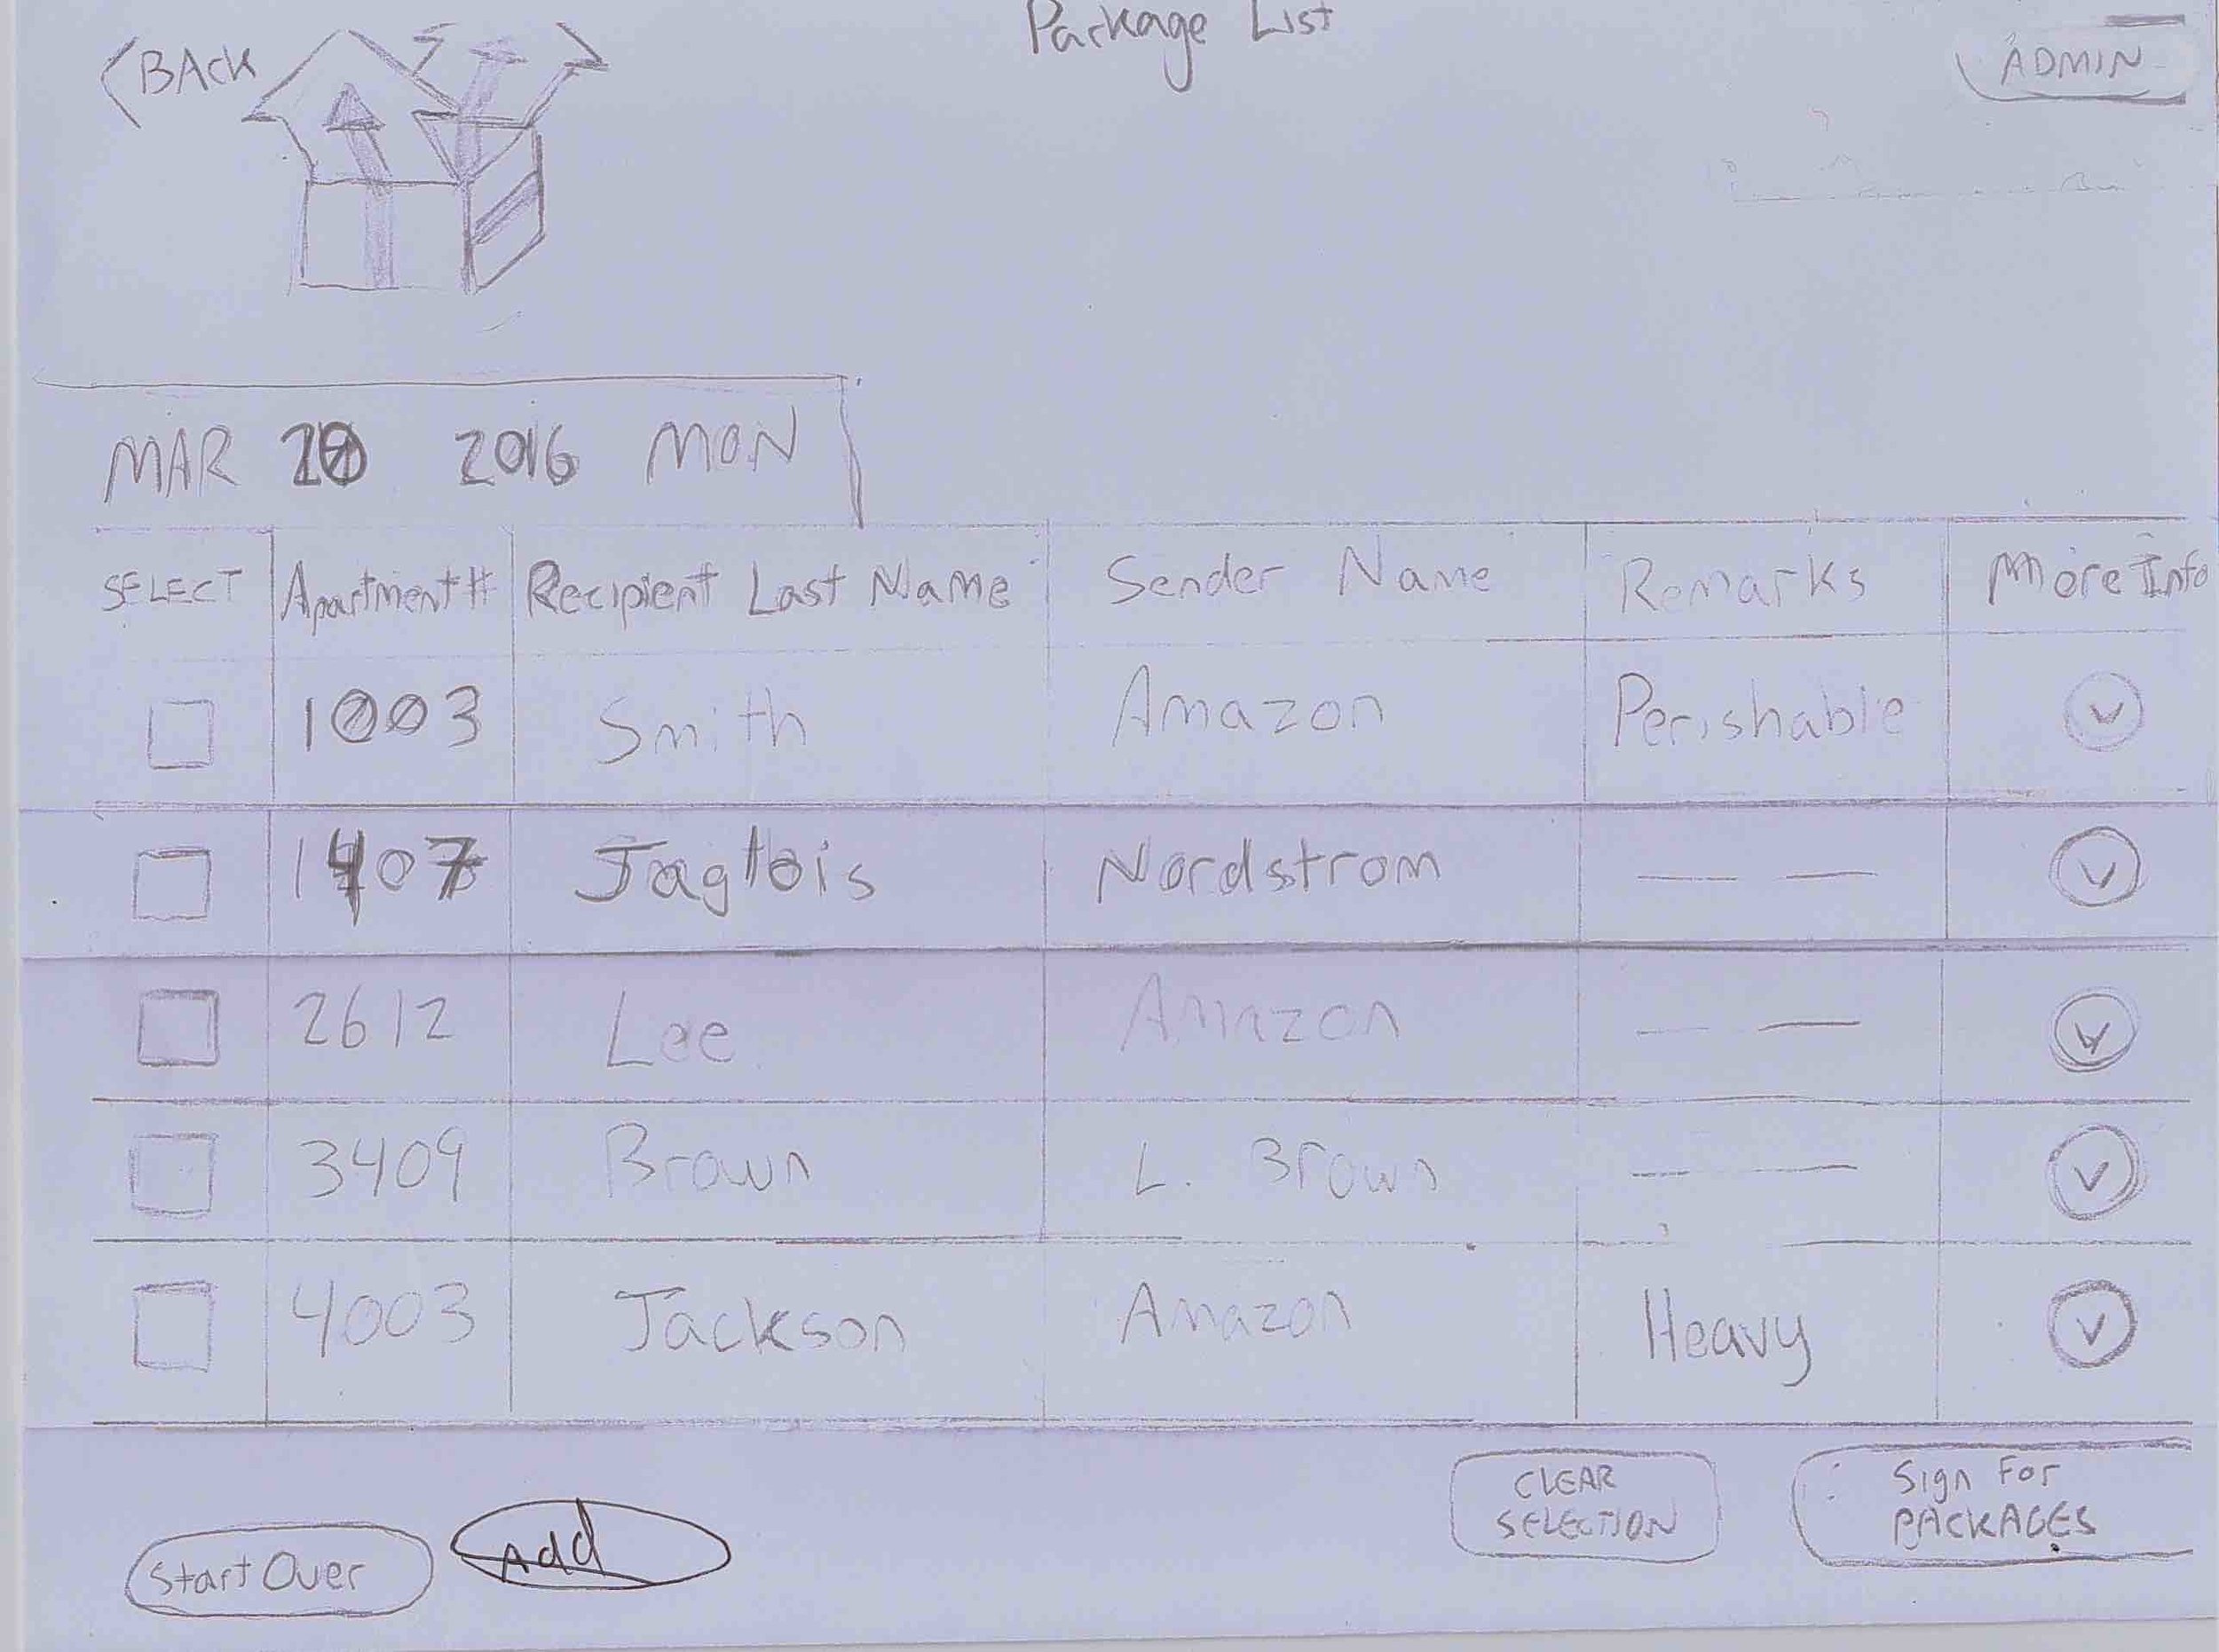 Package List
<BACK
ADMIN
MAR 2016 MON
SELECT Apartment# Recipient Last Name Sender Name Remarks More Info
1003 Smith Amazon Perishable
1407 Nordstrom — —
2612 Lee Amazon — —
3409 Brown L. Brown — —
4003 Jackson Amazon Heavy
Start Over Add
CLEAR
SELECTION
Sign For
PACKAGES